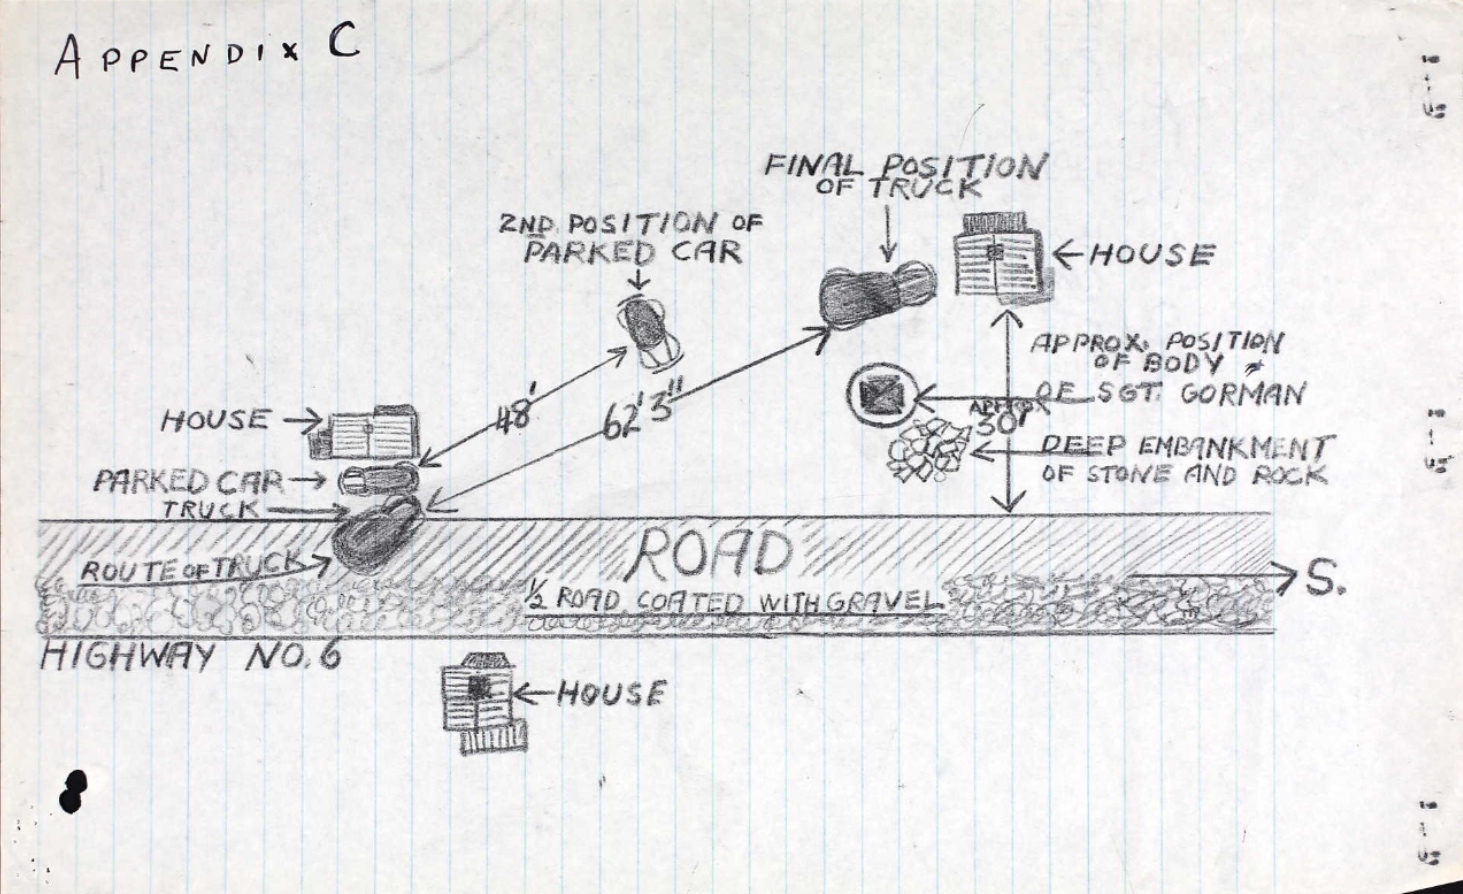 APPENDIX C
FINAL POSITION
OF TRUCK
2ND POSITION OF
PARKED CAR
←HOUSE
APPROX. POSITION
OF BODY
OF SGT. GORMAN
APPROX
30'
DEEP EMBANKMENT
OF STONE AND ROCK
48'
62' 3"
HOUSE→
PARKED CAR→
TRUCK→
ROUTE OF TRUCK
ROAD
1/2 ROAD COATED WITH GRAVEL
S.
HIGHWAY NO. 6
←HOUSE